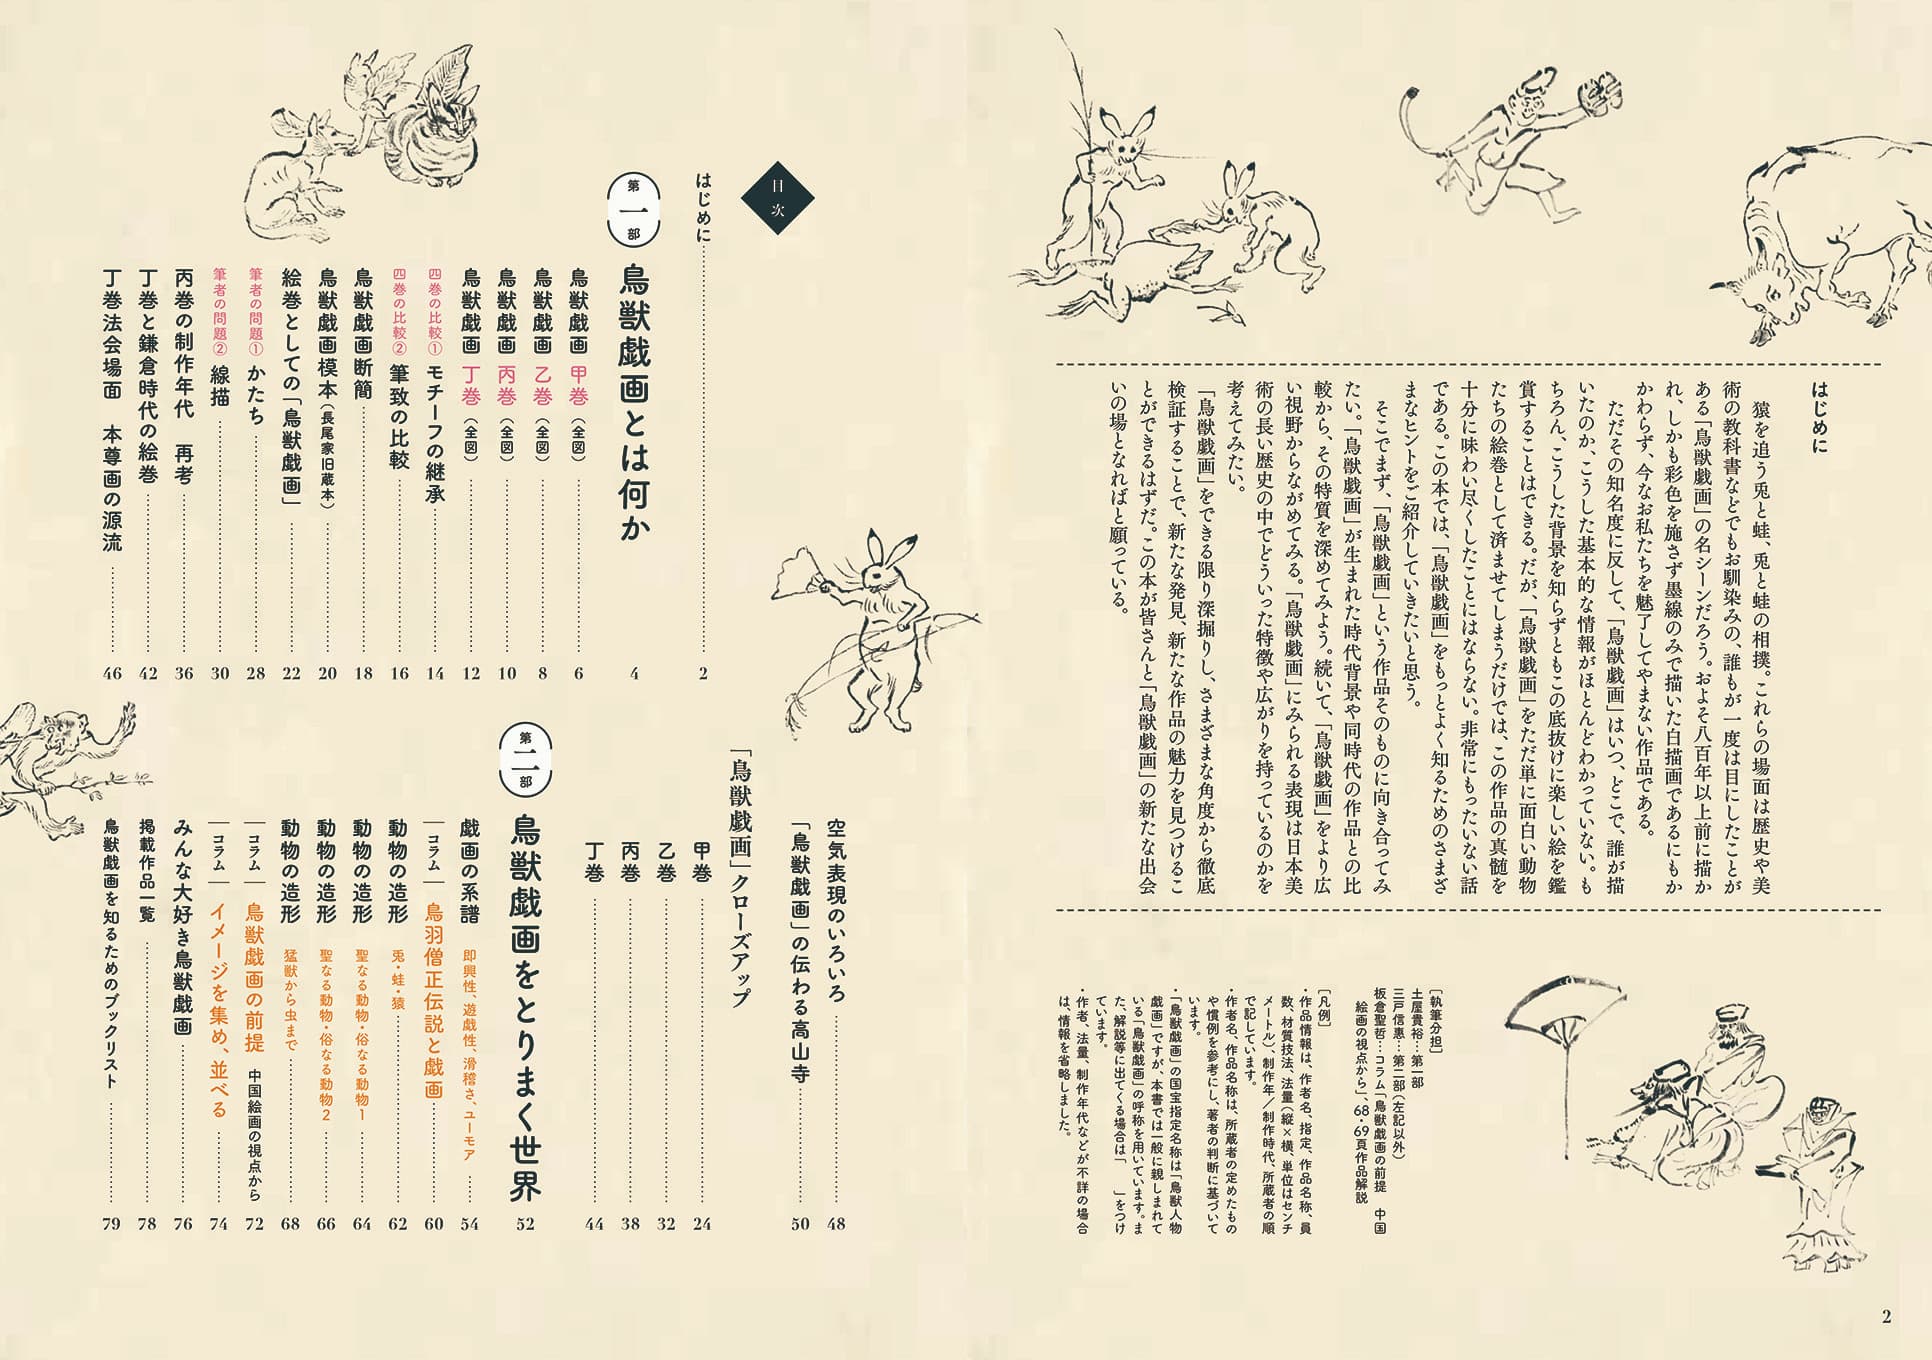 はじめに
　猿を追う兎と蛙、兎と蛙の相撲。これらの場面は歴史や美
術の教科書などでもお馴染みの、誰もが一度は目にしたことが
ある「鳥獣戯画」の名シーンだろう。およそ八百年以上前に描か
れ、しかも彩色を施さず墨線のみで描いた白描画であるにもか
かわらず、今なお私たちを魅了してやまない作品である。
　ただその知名度に反して、「鳥獣戯画」はいつ、どこで、誰が描
いたのか、こうした基本的な情報がほとんどわかっていない。も
ちろん、こうした背景を知らずともこの底抜けに楽しい絵を鑑
賞することはできる。だが、「鳥獣戯画」をただ単に面白い動物
たちの絵巻として済ませてしまうだけでは、この作品の真髄を
十分に味わい尽くしたことにはならない。非常にもったいない話
である。この本では、「鳥獣戯画」をもっとよく知るためのさまざ
まなヒントをご紹介していきたいと思う。
　そこでまず、「鳥獣戯画」という作品そのものに向き合ってみ
たい。「鳥獣戯画」が生まれた時代背景や同時代の作品との比
較から、その特質を深めてみよう。続いて、「鳥獣戯画」をより広
い視野からながめてみる。「鳥獣戯画」にみられる表現は日本美
術の長い歴史の中でどういった特徴や広がりを持っているのかを
考えてみたい。
　「鳥獣戯画」をできる限り深掘りし、さまざまな角度から徹底
検証することで、新たな発見、新たな作品の魅力を見つけるこ
とができるはずだ。この本が皆さんと「鳥獣戯画」の新たな出会
いの場となればと願っている。
［執筆分担］
土屋貴裕…第一部
三戸信惠…第二部（左記以外）
板倉聖哲…コラム「鳥獣戯画の前提　中国
絵画の視点から」、68・69頁作品解説
［凡例］
・作品情報は、作者名、指定、作品名称、員
数、材質技法、法量（縦×横、単位はセンチ
メートル）、制作年／制作時代、所蔵者の順
で記しています。
・作者名、作品名称は、所蔵者の定めたもの
や慣例を参考にし、著者の判断に基づいて
います。
・「鳥獣戯画」の国宝指定名称は「鳥獣人物
戯画」ですが、本書では一般に親しまれて
いる「鳥獣戯画」の呼称を用いています。ま
た、解説等に出てくる場合は「　」をつけ
ています。
・作者、法量、制作年代などが不詳の場合
は、情報を省略しました。
2
目次
はじめに 2
第一部 鳥獣戯画とは何か 4
鳥獣戯画 甲巻（全図） 6
鳥獣戯画 乙巻（全図） 8
鳥獣戯画 丙巻（全図） 10
鳥獣戯画 丁巻（全図） 12
四巻の比較① モチーフの継承 14
四巻の比較② 筆致の比較 16
鳥獣戯画断簡 18
鳥獣戯画模本（長尾家旧蔵本） 20
絵巻としての「鳥獣戯画」 22
筆者の問題① かたち 28
筆者の問題② 線描 30
丙巻の制作年代　再考 36
丁巻と鎌倉時代の絵巻 42
丁巻法会場面　本尊画の源流 46
空気表現のいろいろ 48
「鳥獣戯画」の伝わる高山寺 50
「鳥獣戯画」クローズアップ
甲巻 24
乙巻 32
丙巻 38
丁巻 44
第二部 鳥獣戯画をとりまく世界 52
戯画の系譜 即興性、遊戯性、滑稽さ、ユーモア 54
コラム 鳥羽僧正伝説と戯画 60
動物の造形 兎・蛙・猿 62
動物の造形 聖なる動物・俗なる動物1 64
動物の造形 聖なる動物・俗なる動物2 66
動物の造形 猛獣から虫まで 68
コラム 鳥獣戯画の前提 中国絵画の視点から 72
コラム イメージを集め、並べる 74
みんな大好き鳥獣戯画 76
掲載作品一覧 78
鳥獣戯画を知るためのブックリスト 79